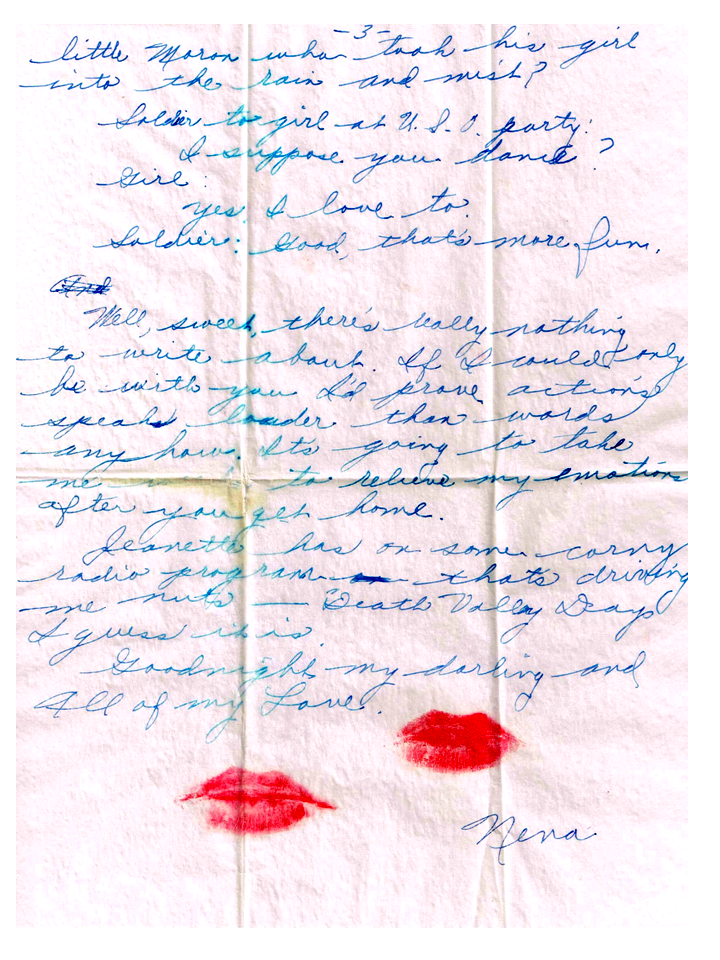 -3-
little Moron who took his girl
into the rain and mist?
Soldier to girl at U.S.O. party:
I suppose you dance?
Girl:
Yes, I love to.
Soldier: Good, that's more fun.
And
Well, sweet, there's really nothing
to write about. If I could only
be with you I'd prove actions
speak louder than words
any how. It's going to take
me to relieve my emotions
after you get home.
Jeanette has on some corny
radio program that's driving
me nuts — Death Valley Days
I guess it is.
Goodnight my darling and
All of my Love.
Nena